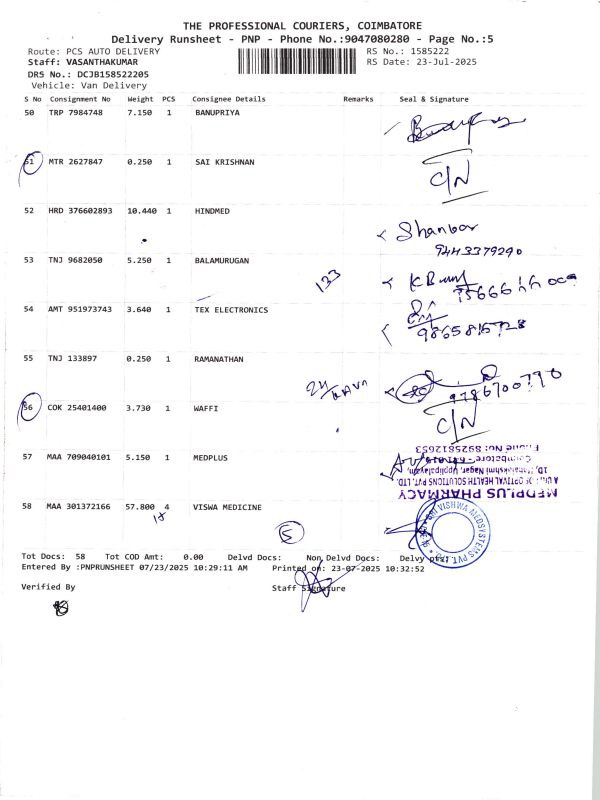 THE PROFESSIONAL COURIERS, COIMBATORE
Delivery Runsheet - PNP - Phone No.:9047080280 - Page No.:5
Route: PCS AUTO DELIVERY RS No.: 1585222
Staff: VASANTHAKUMAR RS Date: 23-Jul-2025
DRS No.: DCJB158522205
Vehicle: Van Delivery
S No Consignment No Weight PCS Consignee Details Remarks Seal & Signature
50 TRP 7984748 7.150 1 BANUPRIYA
51 MTR 2627847 0.250 1 SAI KRISHNAN C/N
52 HRD 376602893 10.440 1 HINDMED Shankar
9443379290
53 TNJ 9682050 5.250 1 BALAMURUGAN 133
54 AMT 951973743 3.640 1 TEX ELECTRONICS
55 TNJ 133897 0.250 1 RAMANATHAN 24/
56 COK 25401400 3.730 1 WAFFI C/N
57 MAA 709040101 5.150 1 MEDPLUS
MEDPLUS PHARMACY
1D, Mahalakshmi Nagar, Uppilipalayam,
Phone No: 8925812653
58 MAA 301372166 57.800 4 VISWA MEDICINE
SRI VISHWA MEDSYSTEMS PVT. LTD.
5
Tot Docs: 58 Tot COD Amt: 0.00 Delvd Docs: Non Delvd Docs: Delvy pts:
Entered By :PNPRUNSHEET 07/23/2025 10:29:11 AM Printed on: 23-07-2025 10:32:52
Verified By Staff Signature